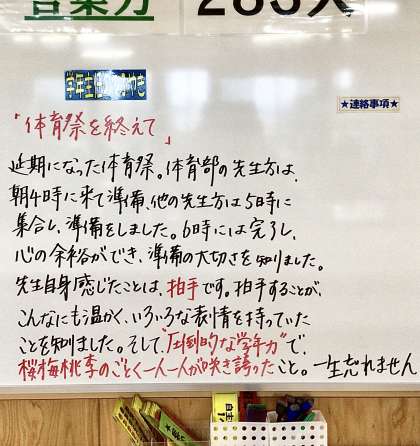 言葉力 283人
学年主任
やき
★連絡事項★
「体育祭を終えて」
延期になった体育祭。体育部の先生方は、
朝4時に来て準備、他の先生方は5時に
集合し、準備をしました。6時には完了し、
心の余裕ができ、準備の大切さを知りました。
先生自身感じたことは、拍手です。拍手することが、
こんなにも温かく、いろいろな表情を持っていた
ことを知りました。そして、"圧倒的な学年力"で、
桜梅桃李のごとく一人一人が咲き誇ったこと。一生忘れません
自主